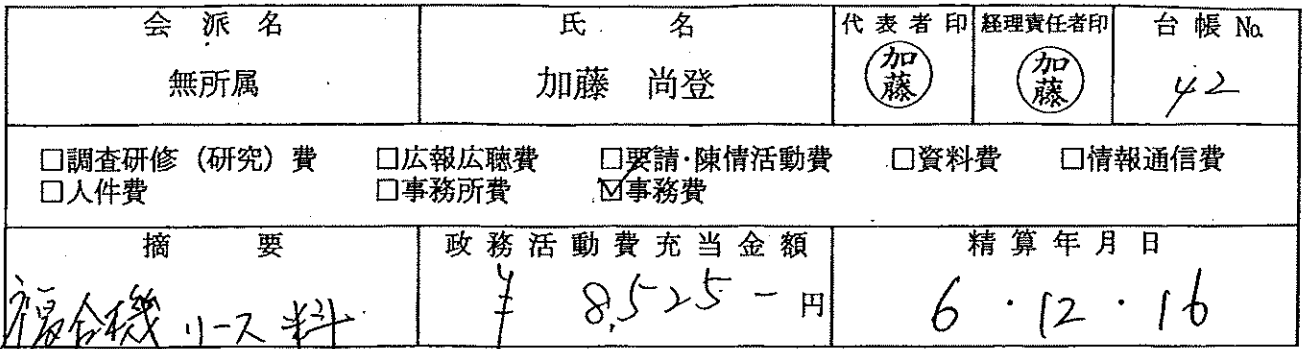 会派名 氏名 代表者印 経理責任者印 台帳 No.
無所属 加藤 尚登 加藤 加藤 42
□調査研修（研究）費 □広報広聴費 □要請・陳情活動費 □資料費 □情報通信費
□人件費 □事務所費 ☑事務費
摘要 政務活動費充当金額 精算年月日
複合機リース料 ¥ 8,525- 円 6・12・16